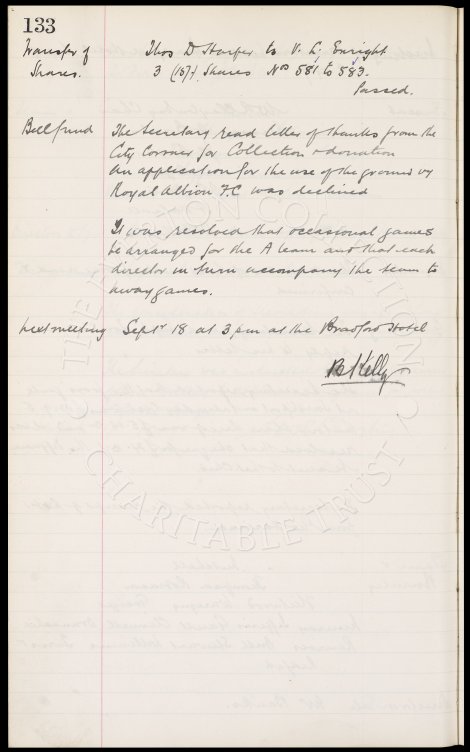 133
Transfer of Thos D Harper to V. L. Enright
Shares. 3 (15/-) Shares Nos 581 to 583.
Passed.
Bell fund The Secretary read letter of thanks from the
City Coroner for Collection & donation
An application for the use of the ground by
Royal Albion F.C was declined
It was resolved that occasional games
be arranged for the A team and that each
director in turn accompany the team to
away games.
next meeting Septr 18 at 3 pm at the Bradford Hotel
Kelly
CHARITABLE TRUST
COLLECTION